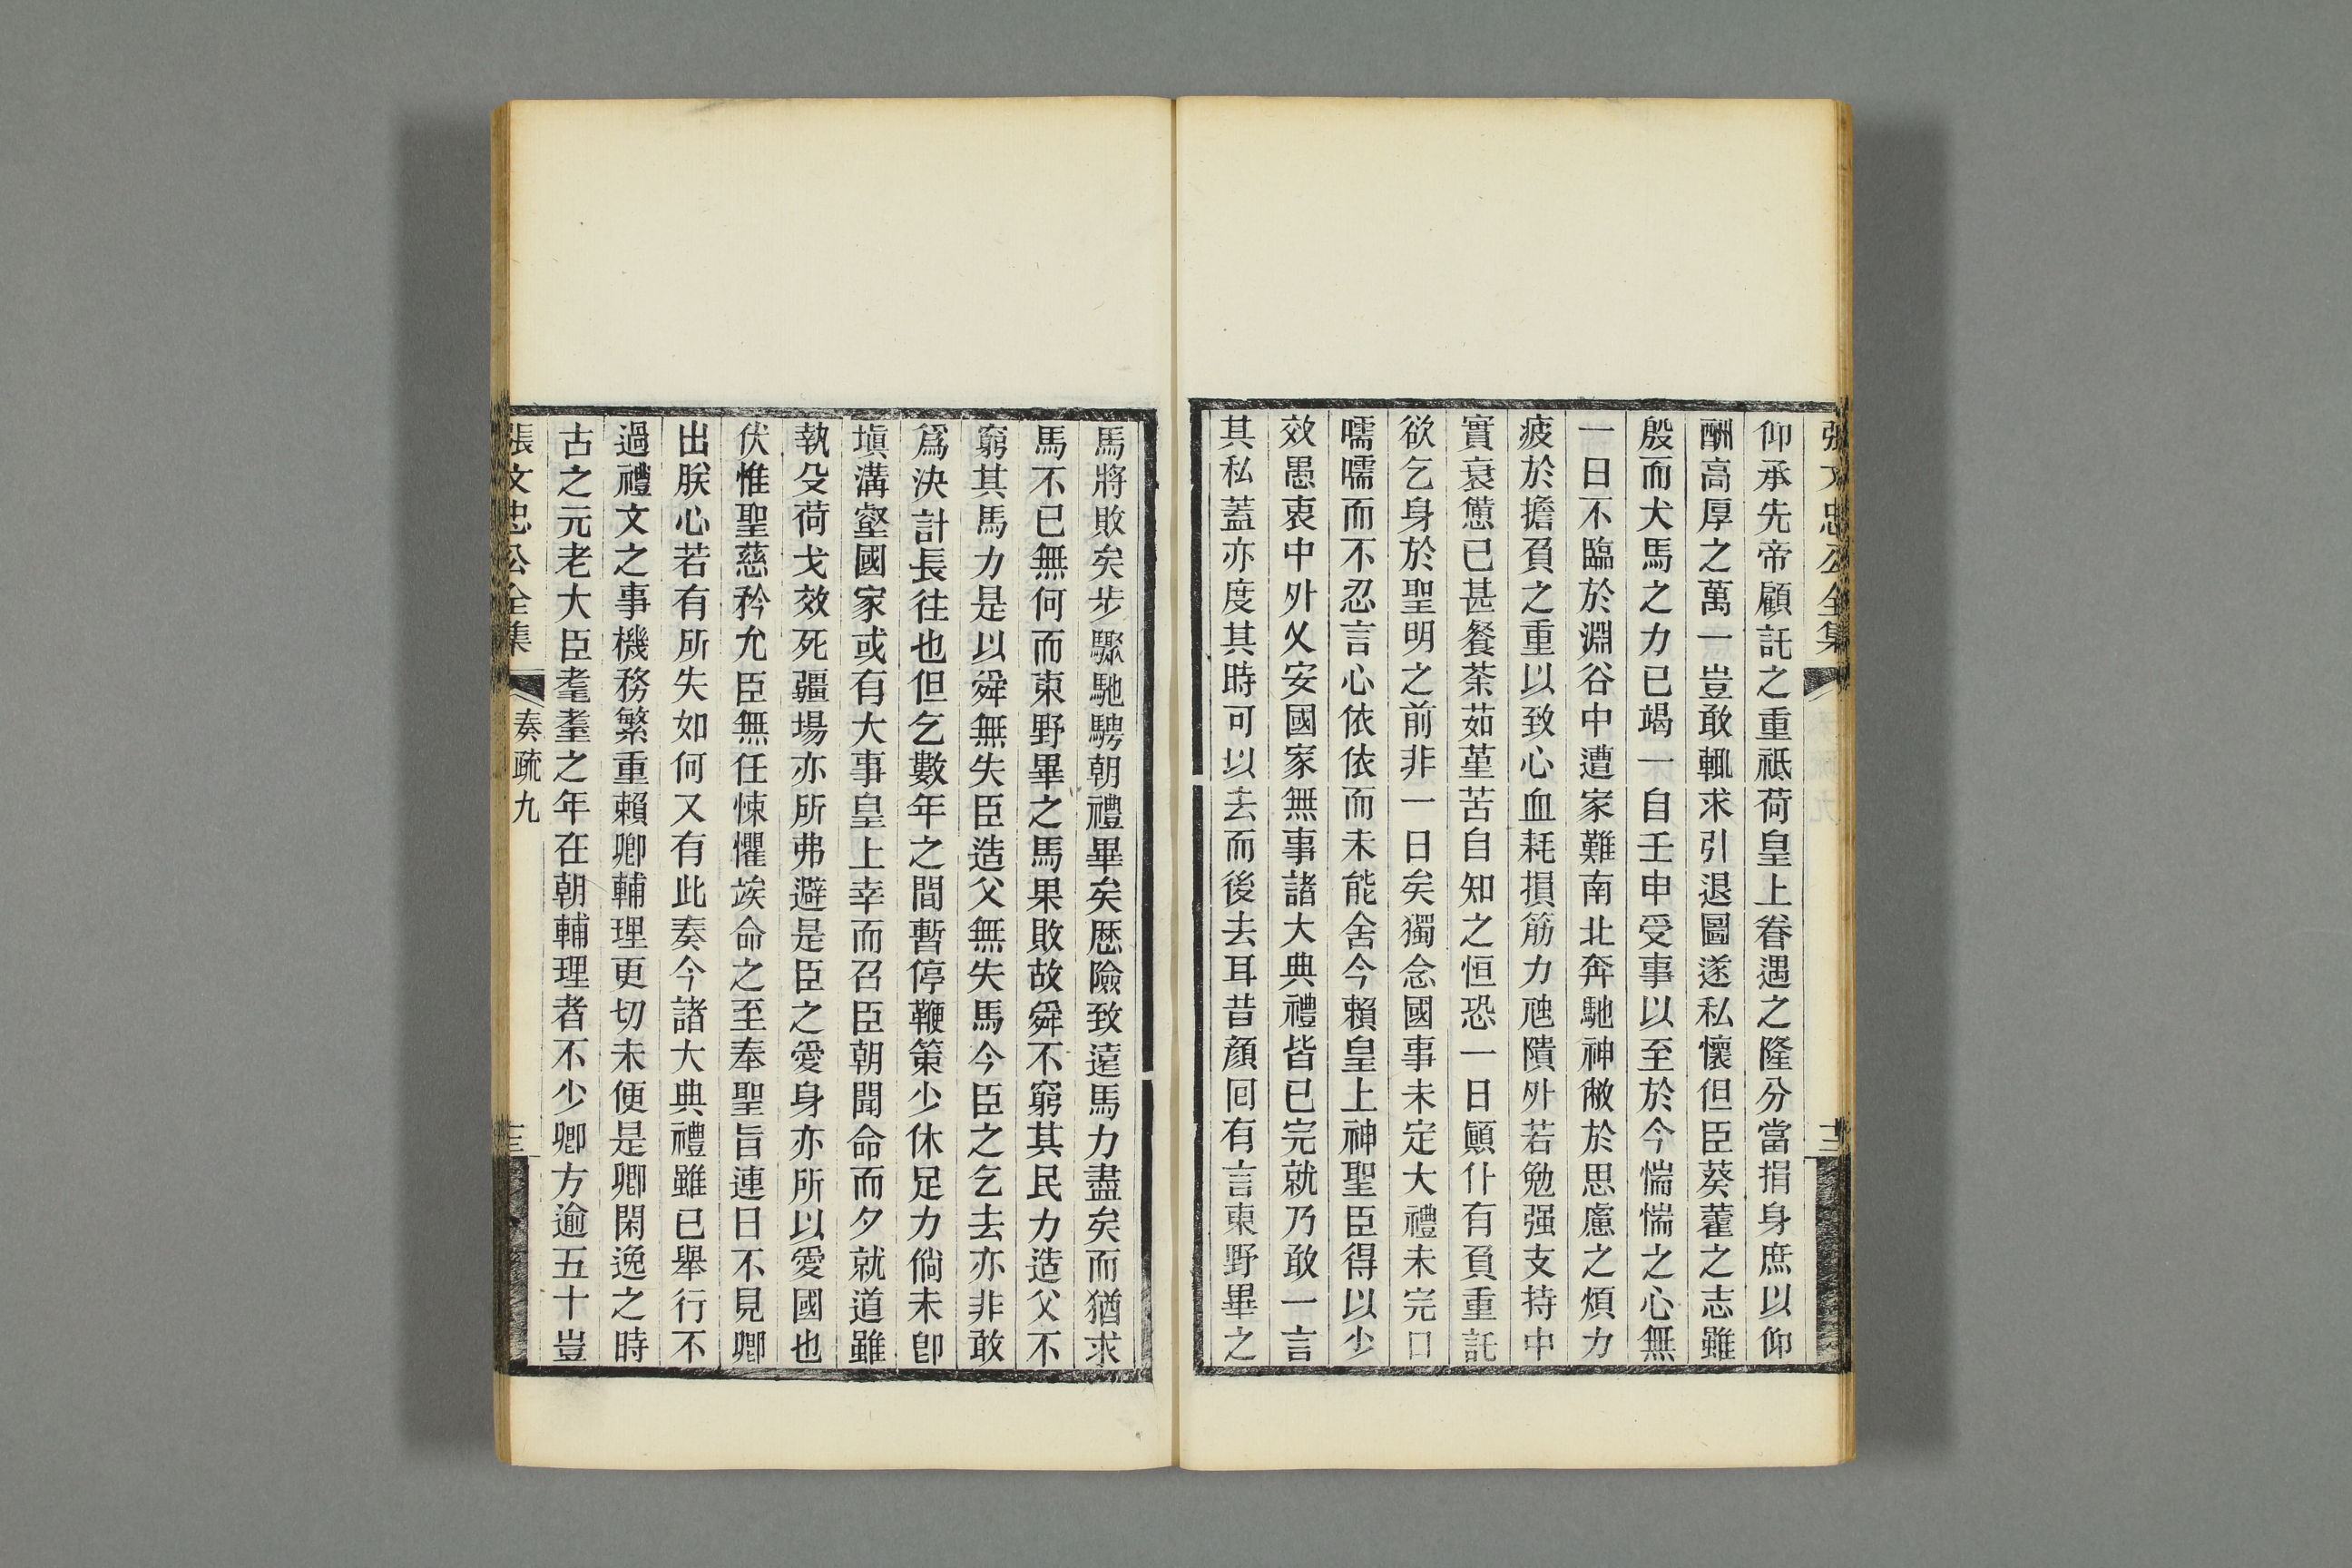 張文忠公全集
十二
仰承先帝顧託之重祗荷皇上眷遇之隆分當捐身庶以仰
酬高厚之萬一豈敢輒求引退圖遂私懷但臣葵藿之志雖
殷而犬馬之力已竭一自壬申受事以至於今惴惴之心無
一日不臨於淵谷中遭家難南北奔馳神敝於思慮之煩力
疲於擔負之重以致心血耗損筋力虺隤外若勉强支持中
實衰憊已甚餐荼茹堇苦自知之恒恐一日顚仆有負重託
欲乞身於聖明之前非一日矣獨念國事未定大禮未完口
嚅嚅而不忍言心依依而未能舍今賴皇上神聖臣得以少
效愚衷中外乂安國家無事諸大典禮皆已完就乃敢一言
其私蓋亦度其時可以去而後去耳昔顏回有言東野畢之
馬將敗矣步驟馳騁朝禮畢矣歷險致遠馬力盡矣而猶求
馬不已無何而東野畢之馬果敗故舜不窮其民力造父不
窮其馬力是以舜無失臣造父無失馬今臣之乞去亦非敢
爲決計長往也但乞數年之間暫停鞭策少休足力倘未卽
塡溝壑國家或有大事皇上幸而召臣朝聞命而夕就道雖
執殳荷戈效死疆場亦所弗避是臣之愛身亦所以愛國也
伏惟聖慈矜允臣無任悚懼竢命之至奉聖旨連日不見卿
出朕心若有所失如何又有此奏今諸大典禮雖已舉行不
過禮文之事機務繁重賴卿輔理更切未便是卿閑逸之時
古之元老大臣耄耋之年在朝輔理者不少卿方逾五十豈
張文忠公全集
奏疏九
十三